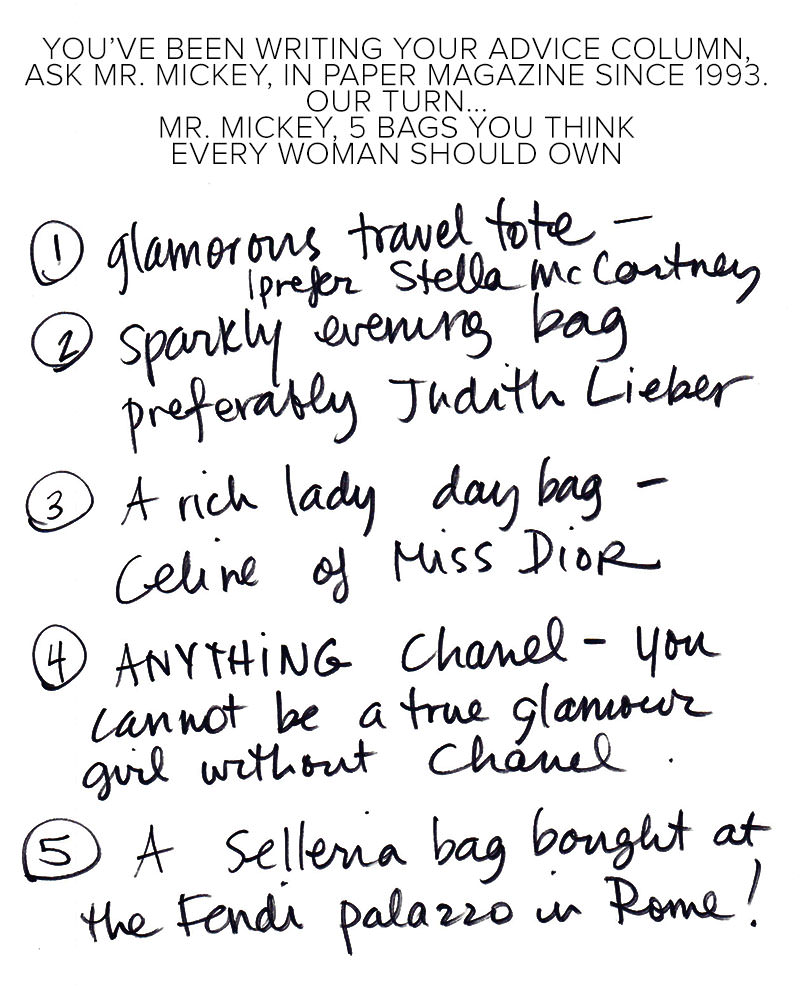 YOU'VE BEEN WRITING YOUR ADVICE COLUMN,
ASK MR. MICKEY, IN PAPER MAGAZINE SINCE 1993.
OUR TURN...
MR. MICKEY, 5 BAGS YOU THINK
EVERY WOMAN SHOULD OWN
1 glamorous travel tote —
I prefer Stella McCartney
2 sparkly evening bag
preferably Judith Lieber
3 A rich lady day bag -
Celine of Miss Dior
4 ANYTHING Chanel - you
cannot be a true glamour
girl without Chanel.
5 A Selleria bag bought at
the Fendi palazzo in Rome!